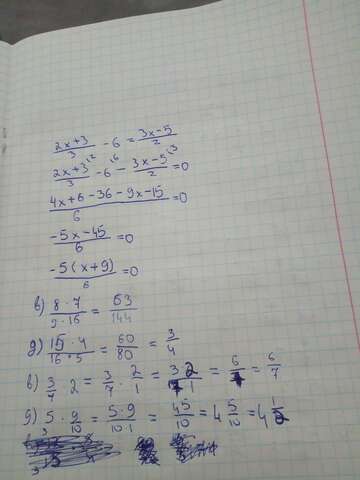 (2x+3)/3 - 6 = (3x-5)/2
(2x+3)/3 ^(2 - 6 ^(6 - (3x-5)/2 ^(3 = 0
(4x+6-36-9x-15)/6 = 0
(-5x-45)/6 = 0
(-5(x+9))/6 = 0
б) (8·7)/(9·16) = 63/144
д) (15·4)/(16·5) = 60/80 = 3/4
в) 3/7 · 2 = 3/7 · 2/1 = (3·2)/(7·1) = 6/7 = 6/7
д) 5 · 9/10 = (5·9)/(10·1) = 45/10 = 4 5/10 = 4 1/2